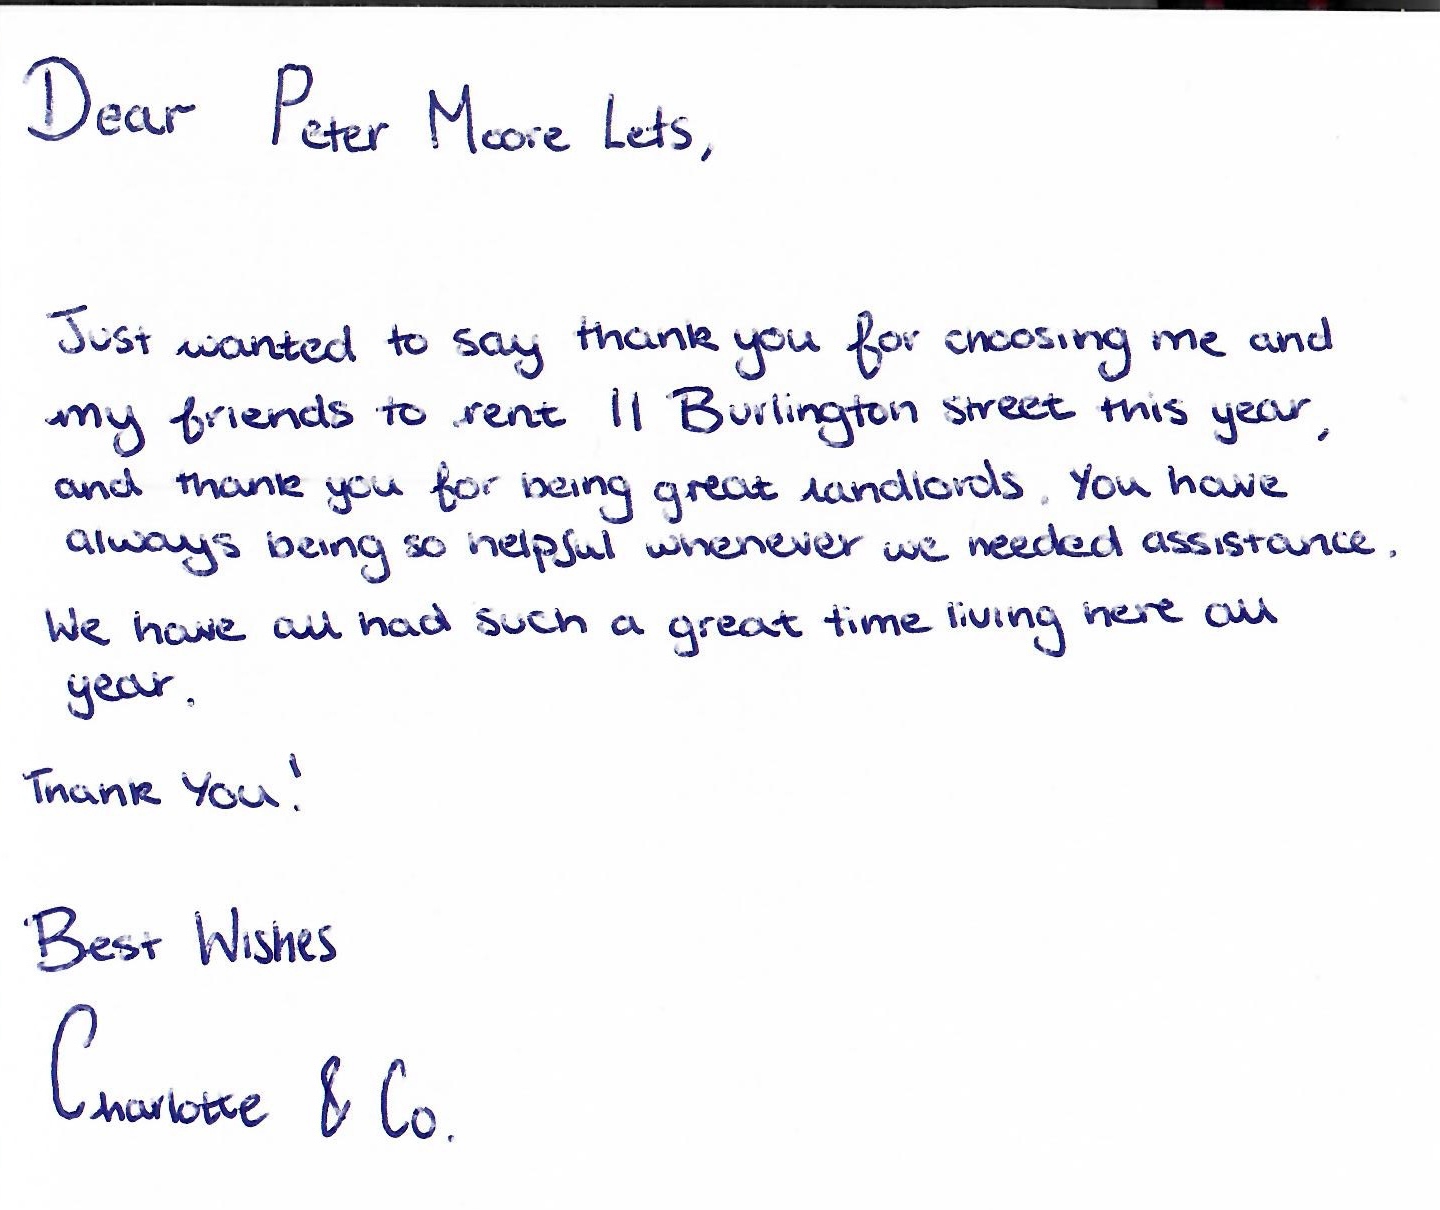 Dear Peter Moore Lets,
Just wanted to say thank you for choosing me and
my friends to rent 11 Burlington street this year,
and thank you for being great landlords. You have
always being so helpful whenever we needed assistance.
We have all had such a great time living here all
year.
Thank You!
Best Wishes
Charlotte & Co.